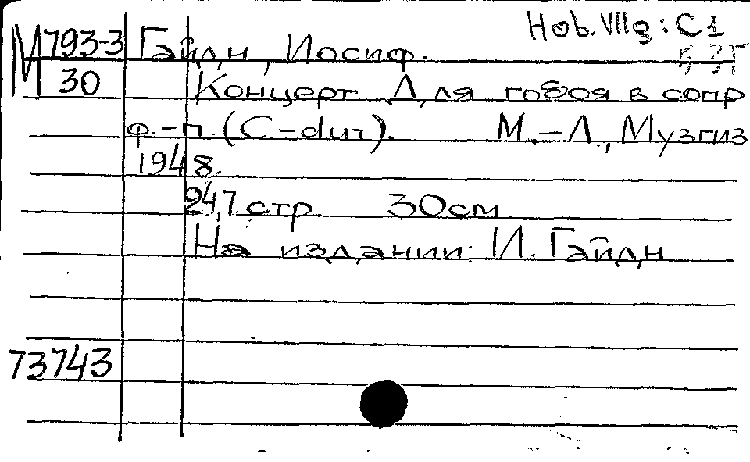 Hob. VIIg: C1
М 793-3 Гайдн, Иосиф.
30 Концерт Для гобоя в сопр
ф.-п. (C-dur). М.-Л, Музгиз
1948.
24,7 стр 30см
На издании: И. Гайдн
73743